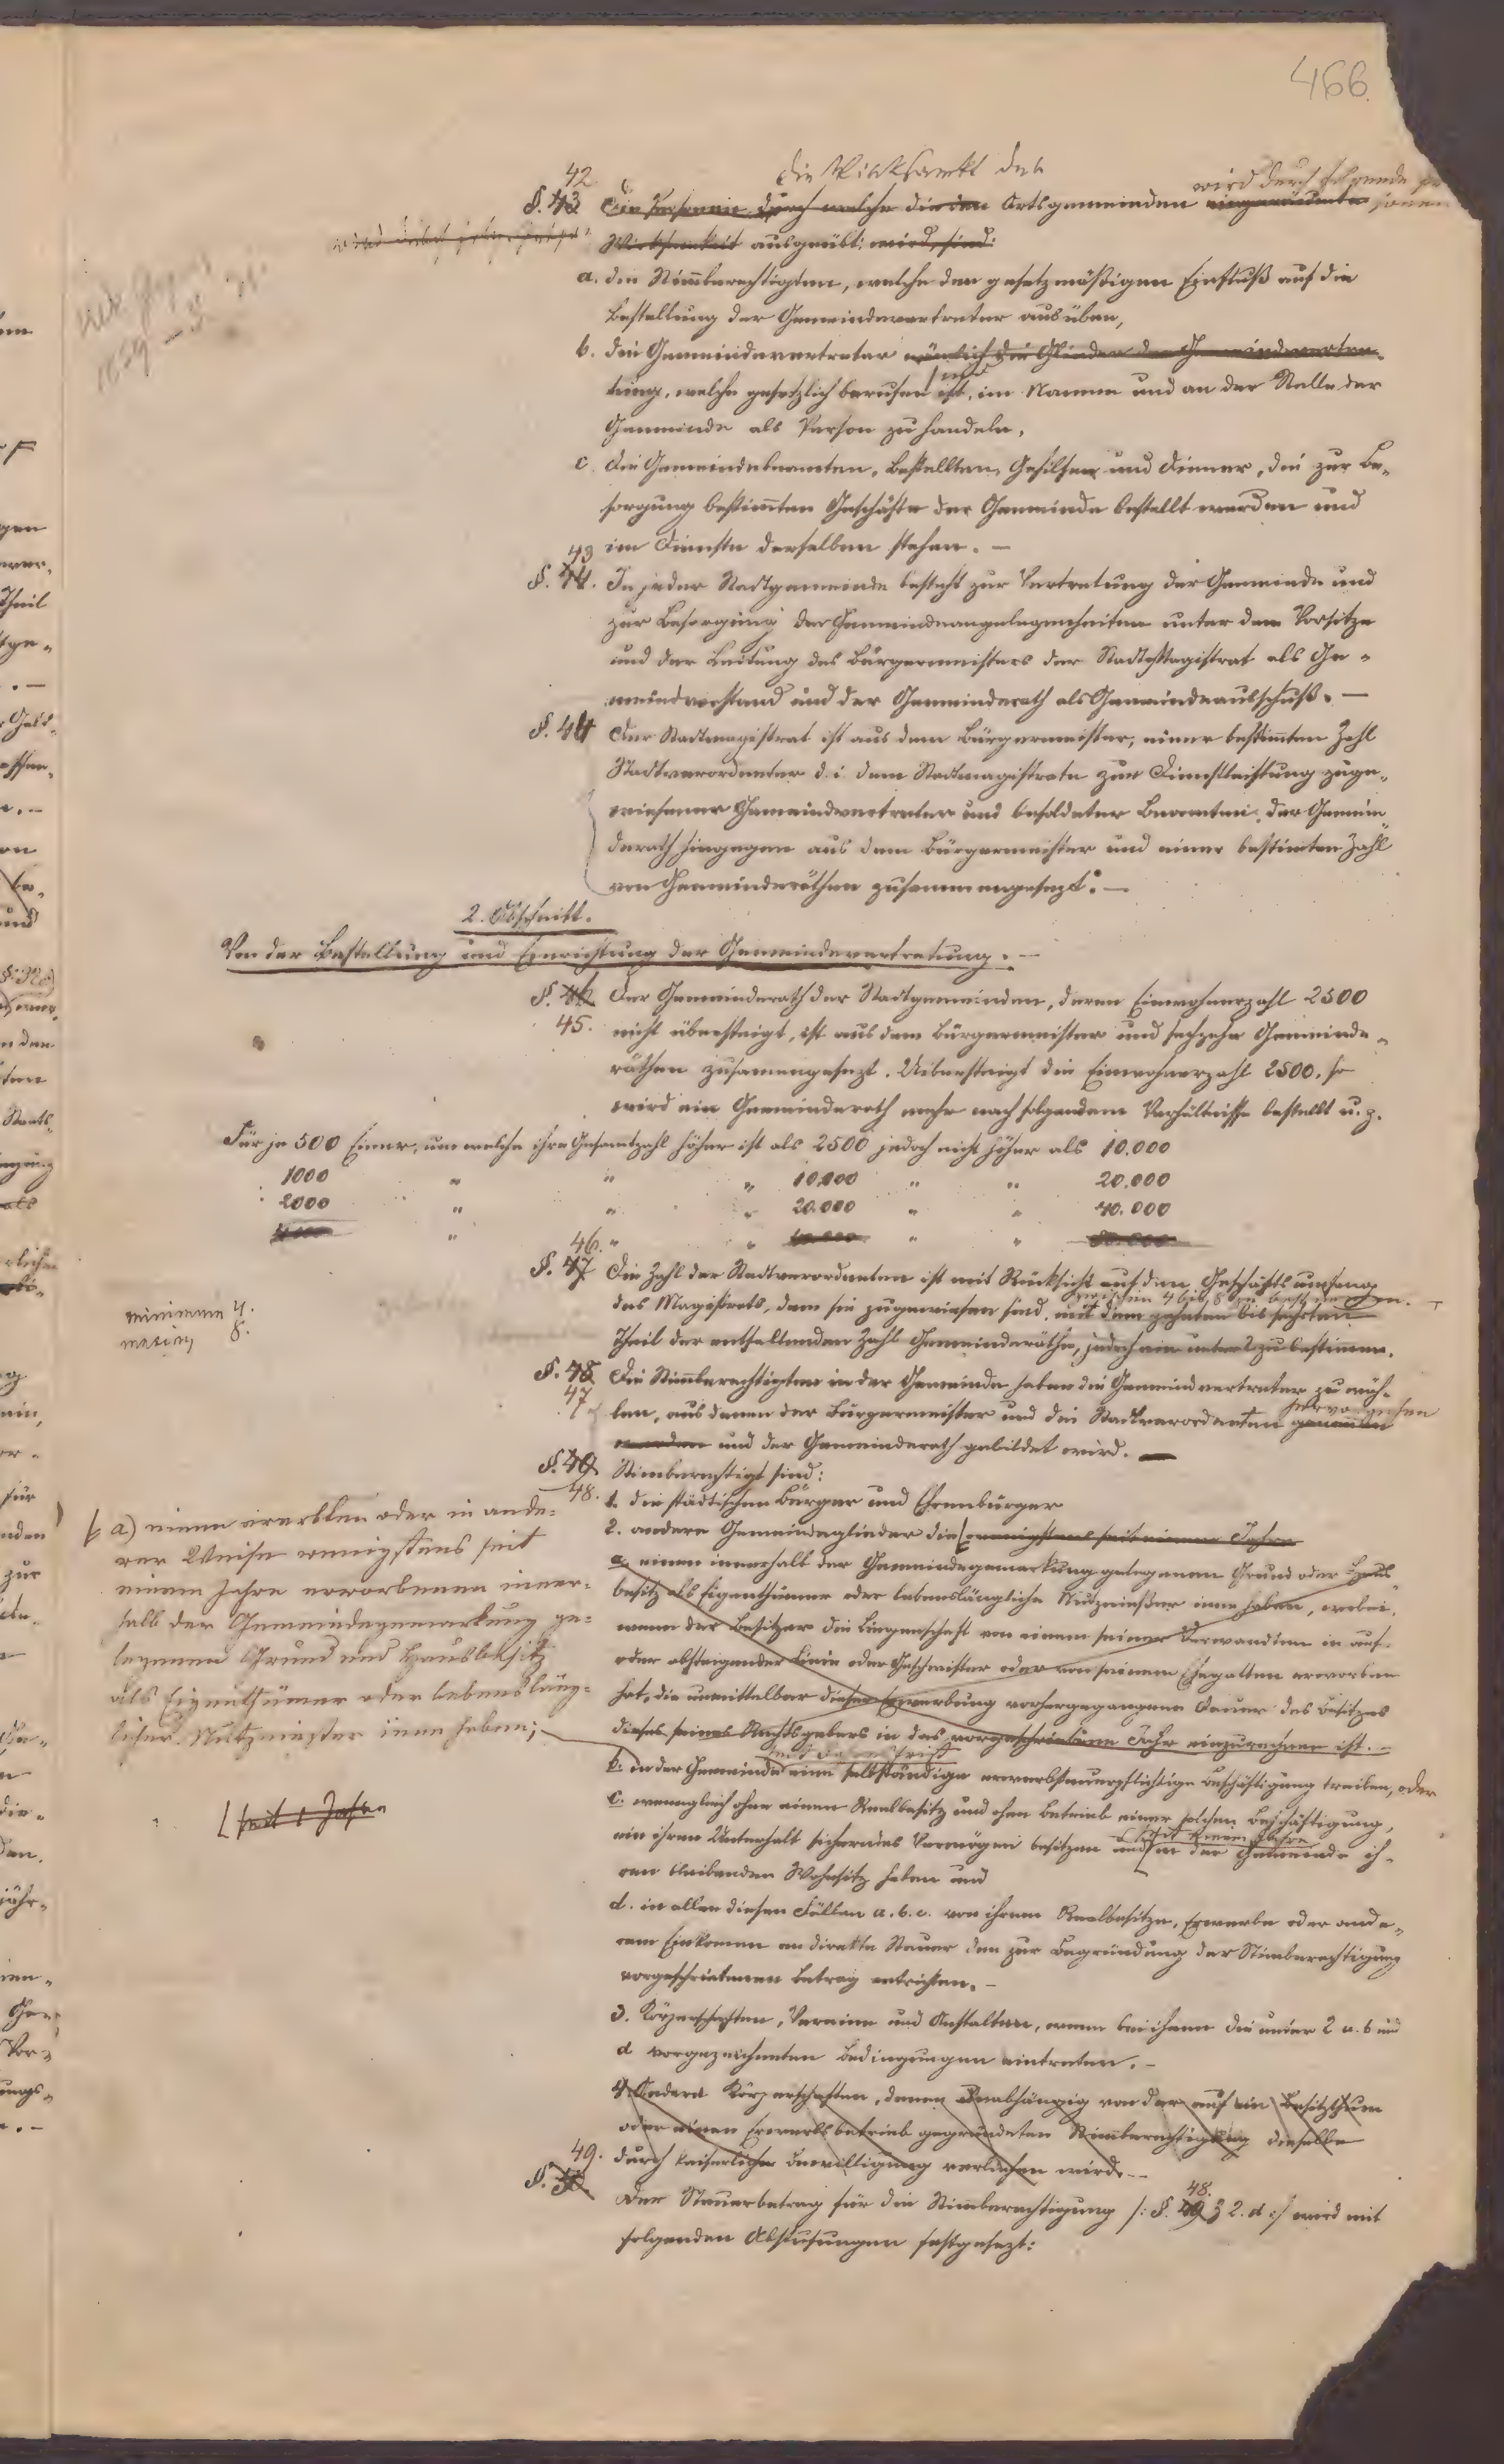 466.
42
die Wirksamkeit der
wird durch folgende
§. 43 Die Personen durch welche die den Ortsgemeinden eingeräumte
Wirksamkeit ausgeübt: wird, sind:
a. die Stimmberechtigten, welche den gesetzmäßigen Einfluß auf die
Bestellung der Gemeindevertreter ausüben,
b. die Gemeindevertreter nämlich die Glieder der Gemeindevertre-
tung, welche gesetzlich berufen ist, im Namen und an der Stelle der
Gemeinde als Person zu handeln,
c. die Gemeindebeamten, Bestellten, Gehilfen und Diener, die zur Be-
sorgung bestimmten Geschäfte der Gemeinde bestellt werden und
im Dienste derselben stehen. —
43
§. 44. In jeder Stadtgemeinde besteht zur Vertretung der Gemeinde und
zur Besorgung der Gemeindeangelegenheiten unter dem Vorsitze
und der Leitung des Bürgermeisters der Stadtmagistrat als Ge-
meindevorstand und der Gemeinderath als Gemeindeausschuß. —
§. 44 Der Stadtmagistrat ist aus dem Bürgermeister, einer bestimmten Zahl
Stadtverordneter d. i. dem Stadtmagistrate zur Dienstleistung zuge-
wiesener Gemeindevertreter und besoldeter Beamten, der Gemein-
derath hingegen aus dem Bürgermeister und einer bestimmten Zahl
von Gemeinderäthen zusammengesetzt. —
2. Abschnitt.
Von der Bestellung und Einrichtung der Gemeindevertretung. —
§. 46 Der Gemeinderath der Stadtgemeinden, deren Einwohnerzahl 2500
45. nicht übersteigt, ist aus dem Bürgermeister und sechzehn Gemeinde-
räthen zusammengesetzt. Uibersteigt die Einwohnerzahl 2500, so
wird ein Gemeinderath mehr nach folgendem Verhältnisse bestellt u. z.
Für je 500 Einer, um welche ihre Gesamtzahl höher ist als 2500 jedoch nicht höher als 10.000
1000 " " " 10.000 " " 20.000
2000 " " " 20.000 " " 40.000
4000 " " " 40.000 " " 80.000
46.
§. 47 Die Zahl der Stadtverordneten ist mit Rücksicht auf den Geschäftsumfang
zwischen 4 bis 8 zu bestimmen. —
des Magistrats, dem sie zugewiesen sind, mit dem zehnten bis sechsten
minimum 4.
maxim 8.
Theil der entfallenden Zahl Gemeinderäthe, jedoch nie unter 2 zu bestimmen.
§. 48 Die Stimmberechtigten in der Gemeinde haben die Gemeindevertreter zu wäh-
47
hervorgehen
len, aus denen der Bürgermeister und die Stadtverordneten genommen
werden und der Gemeinderath gebildet wird. —
§. 49 Stimberechtigt sind:
48. 1. die städtischen Bürger und Ehrenbürger
2. andere Gemeindeglieder die wenigstens seit einem Jahre
a. einen innerhalb der Gemeindegemarkung gelegenen Grund oder Haus
besitz als Eigenthümer oder lebenslängliche Nutznießer inne haben, wobei,
wenn der Besitzer die Liegenschaft von einem seiner Verwandten in auf-
oder absteigender Linie oder Geschwister oder von seinem Ehegatten erworben
hat, die unmittelbar dieser Erwerbung vorhergegangene Dauer des Besitzes
dieses seines Rechtsgebers in das vorgeschriebene Jahr einzurechnen ist. —
a) einen ererbten oder in ande-
rer Weise wenigstens seit
einem Jahre erworbenen inner-
halb der Gemeindegemarkung ge-
legenen Grund und Hausbesitz
als Eigenthümer oder lebensläng-
licher Nutznießer inne haben;
b. in der Gemeinde eine selbständige erwerbsteuerpflichtige Beschäftigung treiben, oder
c. wenngleich ohne einen Realbesitz und ohne Betrieb einer solchen Beschäftigung,
seit 1 Jahre
seit einem Jahre
ein ihren Unterhalt sicherndes Vermögen besitzen und in der Gemeinde ih-
ren bleibenden Wohnsitz haben und
d. in allen diesen Fällen a. b. c. von ihrem Realbesitze, Erwerbe oder ande-
rem Einkomen an direkte Steuer den zur Begründung der Stimberechtigung
vorgeschriebenen Betrag entrichten. —
3. Körperschaften, Vereine und Anstalten, wenn bei ihnen die unter 2 a. b und
d vorgezeichneten Bedingungen eintreten. —
4. Andere Körperschaften, denen unabhängig von der auf ein Besitzthum
oder einen Erwerbsbetrieb gegründeten Stimberechtigung dieselbe
durch kaiserliche Bewilligung verliehen wird. —
49.
§. 50. Der Steuerbetrag für die Stimmberechtigung /: §. 49 48. 2. d :/ wird mit
folgenden Abstufungen festgesetzt: